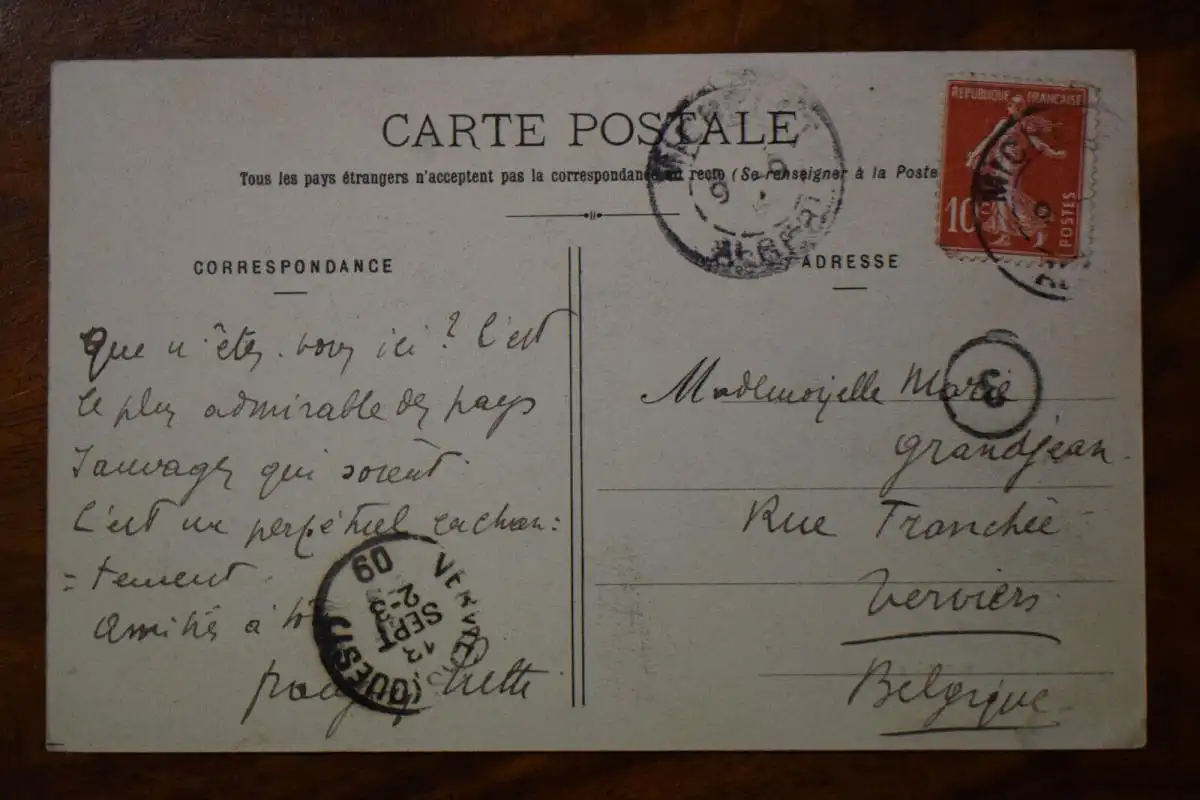 CARTE POSTALE
Tous les pays étrangers n'acceptent pas la correspondance au recto (Se renseigner à la Poste
CORRESPONDANCE
Que n'êtes-vous ici ? C'est
le plus admirable des pays
sauvages qui soient.
C'est un perpétuel enchan:
=tement.
Amitiés à
ADRESSE
Mademoiselle Marie
Grandjean.
Rue Tranchée
Verviers
Belgique
REPUBLIQUE FRANÇAISE
10
POSTES
3
VERVIERS
(OUEST)
13
SEPT
2-3
09